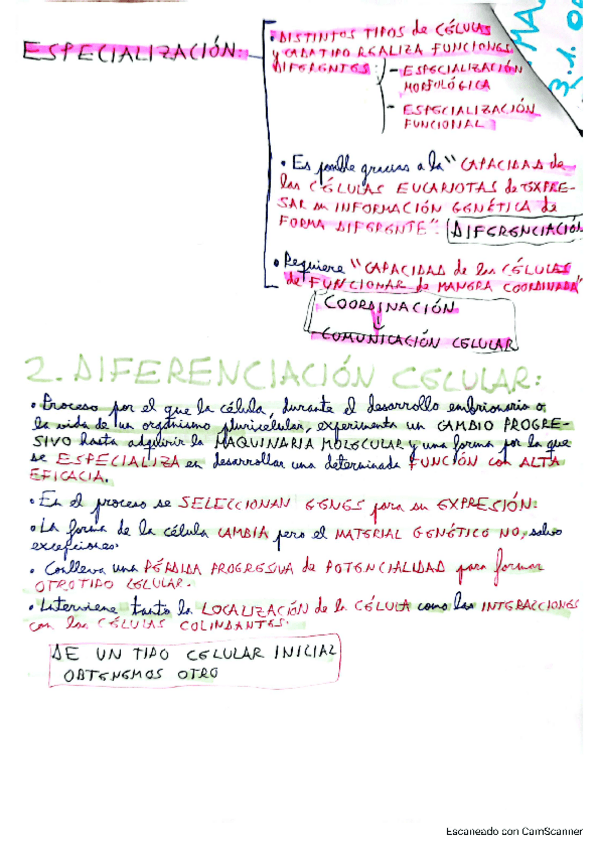 ESPECIALIZACIÓN
• DISTINTOS TIPOS de CÉLULAS
y CADA TIPO REALIZA FUNCIONES
DIFERENTES:
- ESPECIALIZACIÓN
MORFOLÓGICA
- ESPECIALIZACIÓN
FUNCIONAL
MA
3.1.
• Es posible gracias a la "CAPACIDAD de
las CÉLULAS EUCARIOTAS de EXPRE-
SAR su INFORMACIÓN GENÉTICA de
FORMA DIFERENTE". DIFERENCIACIÓN
• Requiere "CAPACIDAD de las CÉLULAS
de FUNCIONAR de MANERA COORDINADA"
COORDINACIÓN
↓
COMUNICACIÓN CELULAR
2. DIFERENCIACIÓN CELULAR:
• Proceso por el que la célula, durante el desarrollo embrionario o
la vida de un organismo pluricelular, experimenta un CAMBIO PROGRE-
SIVO hasta adquirir la MAQUINARIA MOLECULAR y una forma por la que
se ESPECIALIZA en desarrollar una determinada FUNCIÓN con ALTA
EFICACIA.
• En el proceso se SELECCIONAN GENES para su EXPRESIÓN.
• La forma de la célula CAMBIA pero el MATERIAL GENÉTICO NO, salvo
excepciones.
• Conlleva una PÉRDIDA PROGRESIVA de POTENCIALIDAD para formar
OTRO TIPO CELULAR.
• Interviene tanto la LOCALIZACIÓN de la CÉLULA como las INTERACCIONES
con las CÉLULAS COLINDANTES.
DE UN TIPO CELULAR INICIAL
OBTENEMOS OTRO
Escaneado con CamScanner